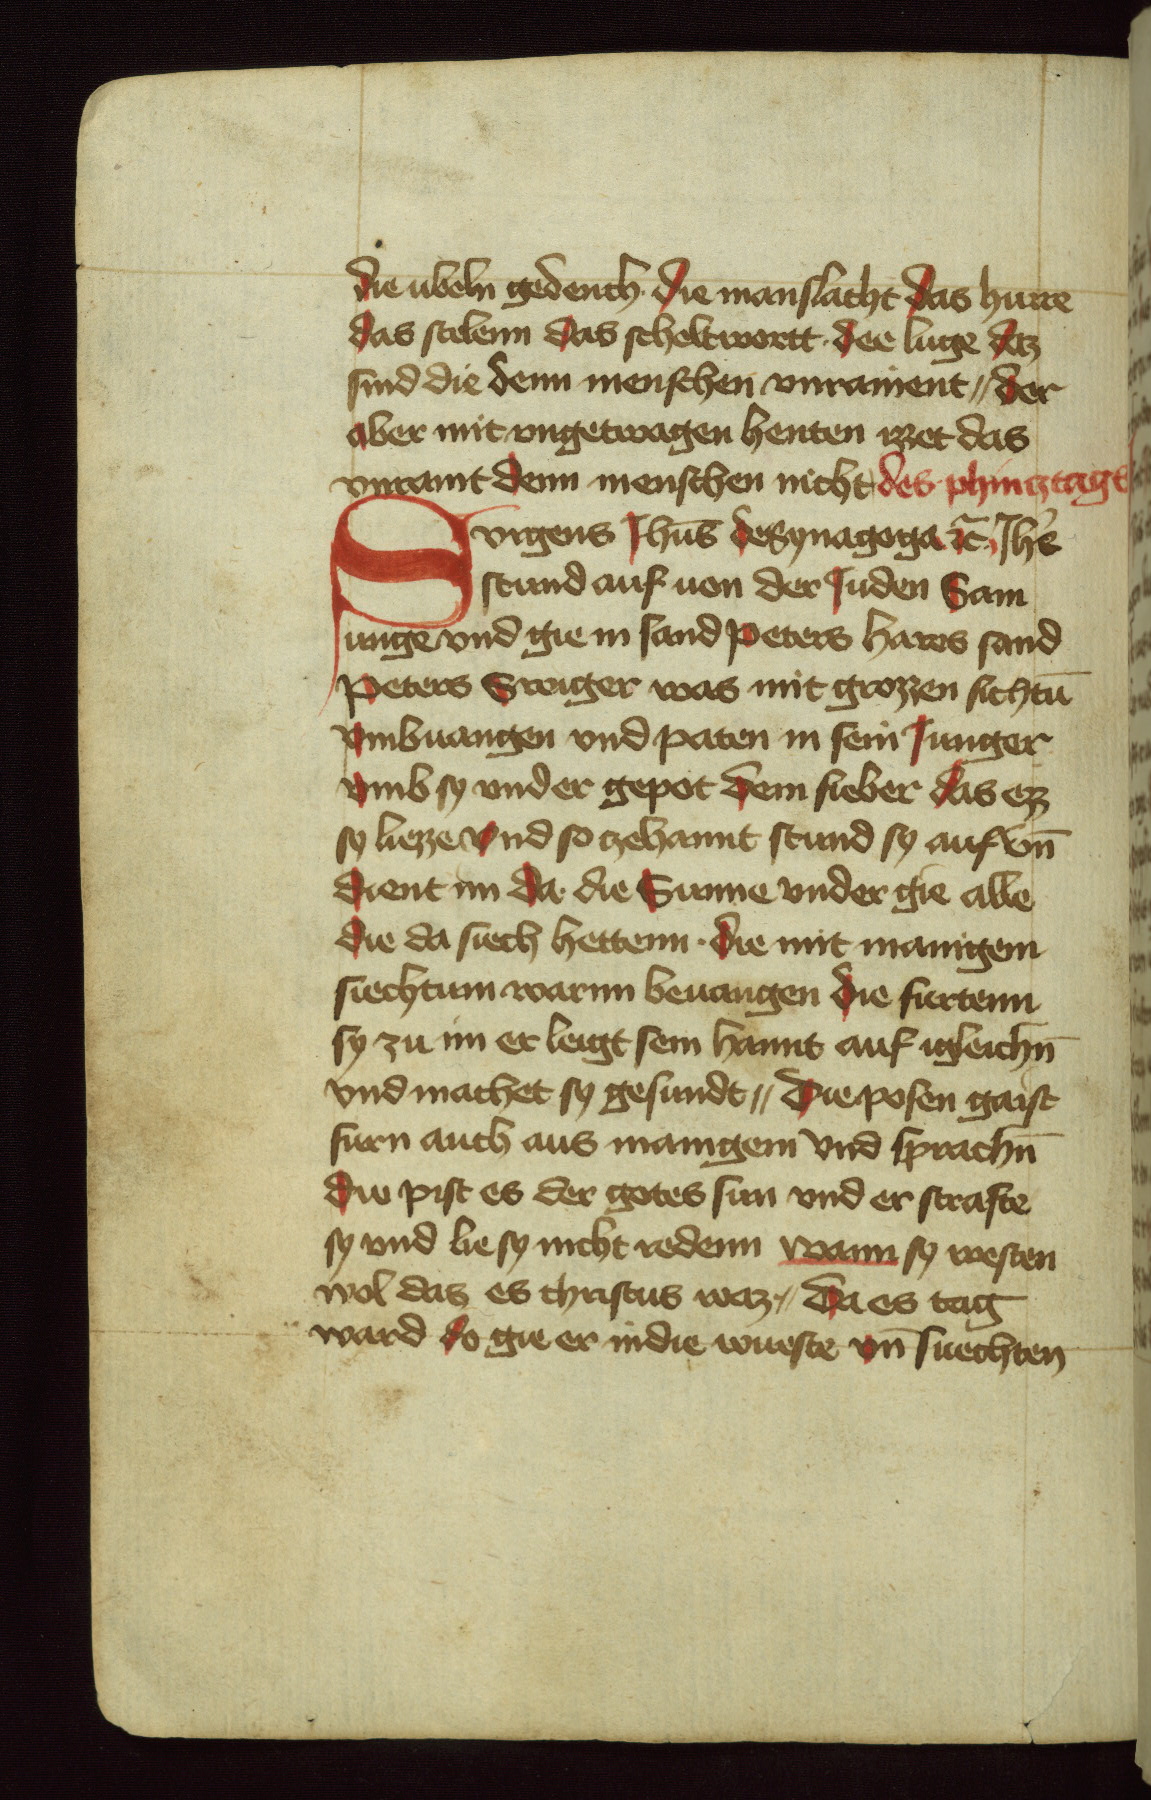 die ubeln gedench · die manslacht das hurre
das stelenn das scheltwortt · dee luge daz
sind die denn menschen vnrainent // der
aber mit vngetwagen henten izzet das
vnraint denn menschen nicht des phincztags
Surgens Jhūs de Synagoga ⁊c̄ Jhs̄
stund auf uon der Juden Sam
iunge vnd gie in sand Peters haws sand
Peters Swiger was mit grozzen sichtū
vmbuangen vnd paten in sein Junger
vmb sy vnd er gepot dem fieber das ez
sy liezze vnd so zehannt stund sy auf vn̄
dient im da die Sunne vnder gie alle
die da siech hettenn · die mit manigem
siechtum warnn beuangen die furtenn
sy zu im er leigt sein hannt auf igleichn̄
vnd machet sy gesundt // Die posen gaist
furn auch aus manigem vnd sprachn̄
du pist es der gotes sun vnd er strafte
sy vnd lie sy nicht redenn wann sy westen
wol das es christus waz // Da es tag
ward do gie er in die wueste vn̄ suechten